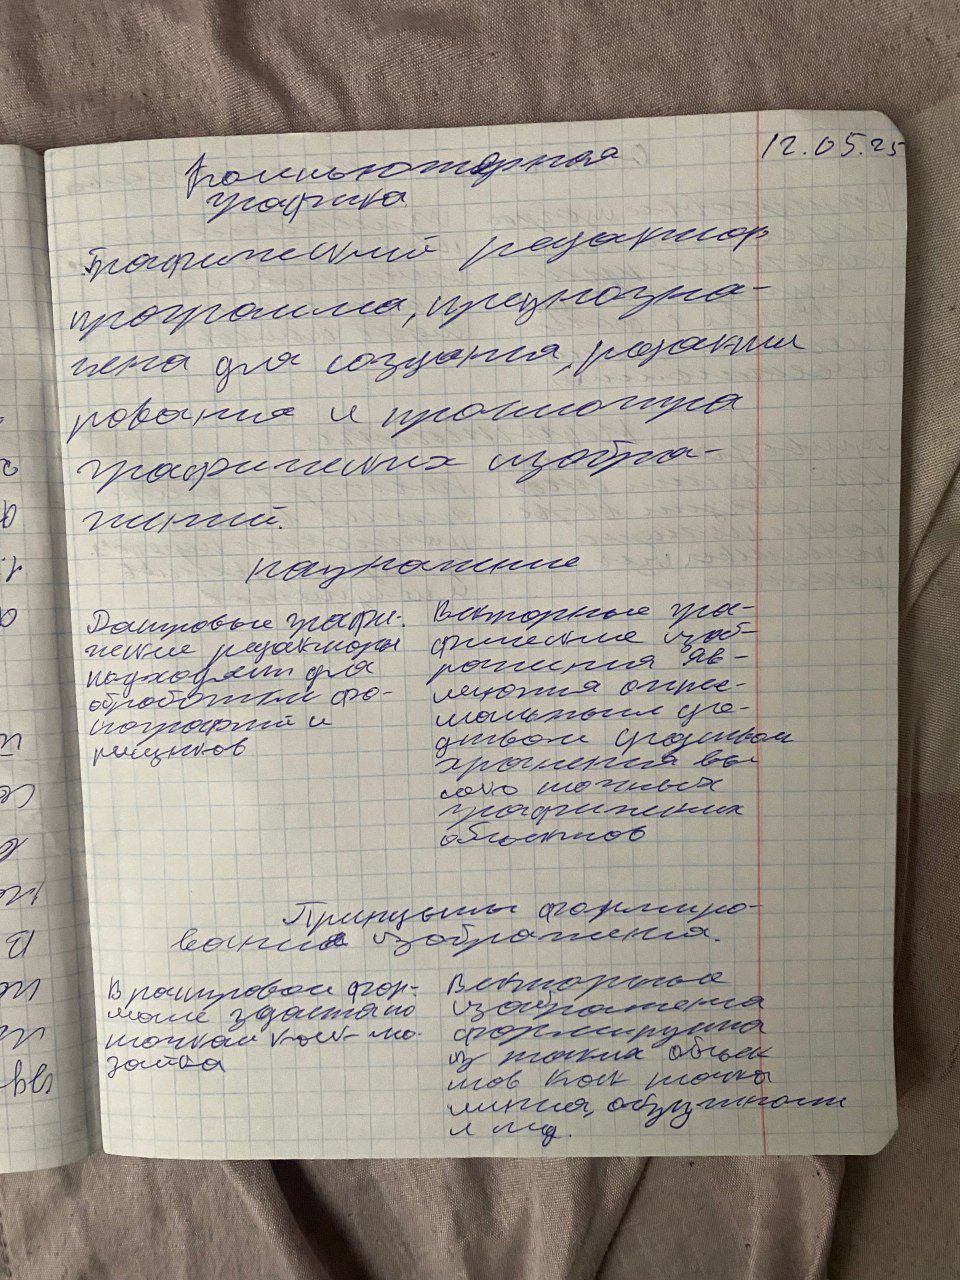 12.05.25
Компьютерная
графика
Графический редактор
программа, предназна-
чена для создания, редакти
рования и просмотра
графических изобра-
жений.
назначение
Растровые графи-
ческие редакторы
подходят для
обработки фо-
тографий и
рисунков
Векторные гра-
фические изоб-
ражения яв-
ляются
средством
хранения вы
соко точных
графических
объектов
Принцыпы формиро-
вания изображения.
В растровой фор-
ме
точкам как мо-
заика
Векторные
изображения
формируются
из таких объек
тов как точка
линия, окружность
и тд.